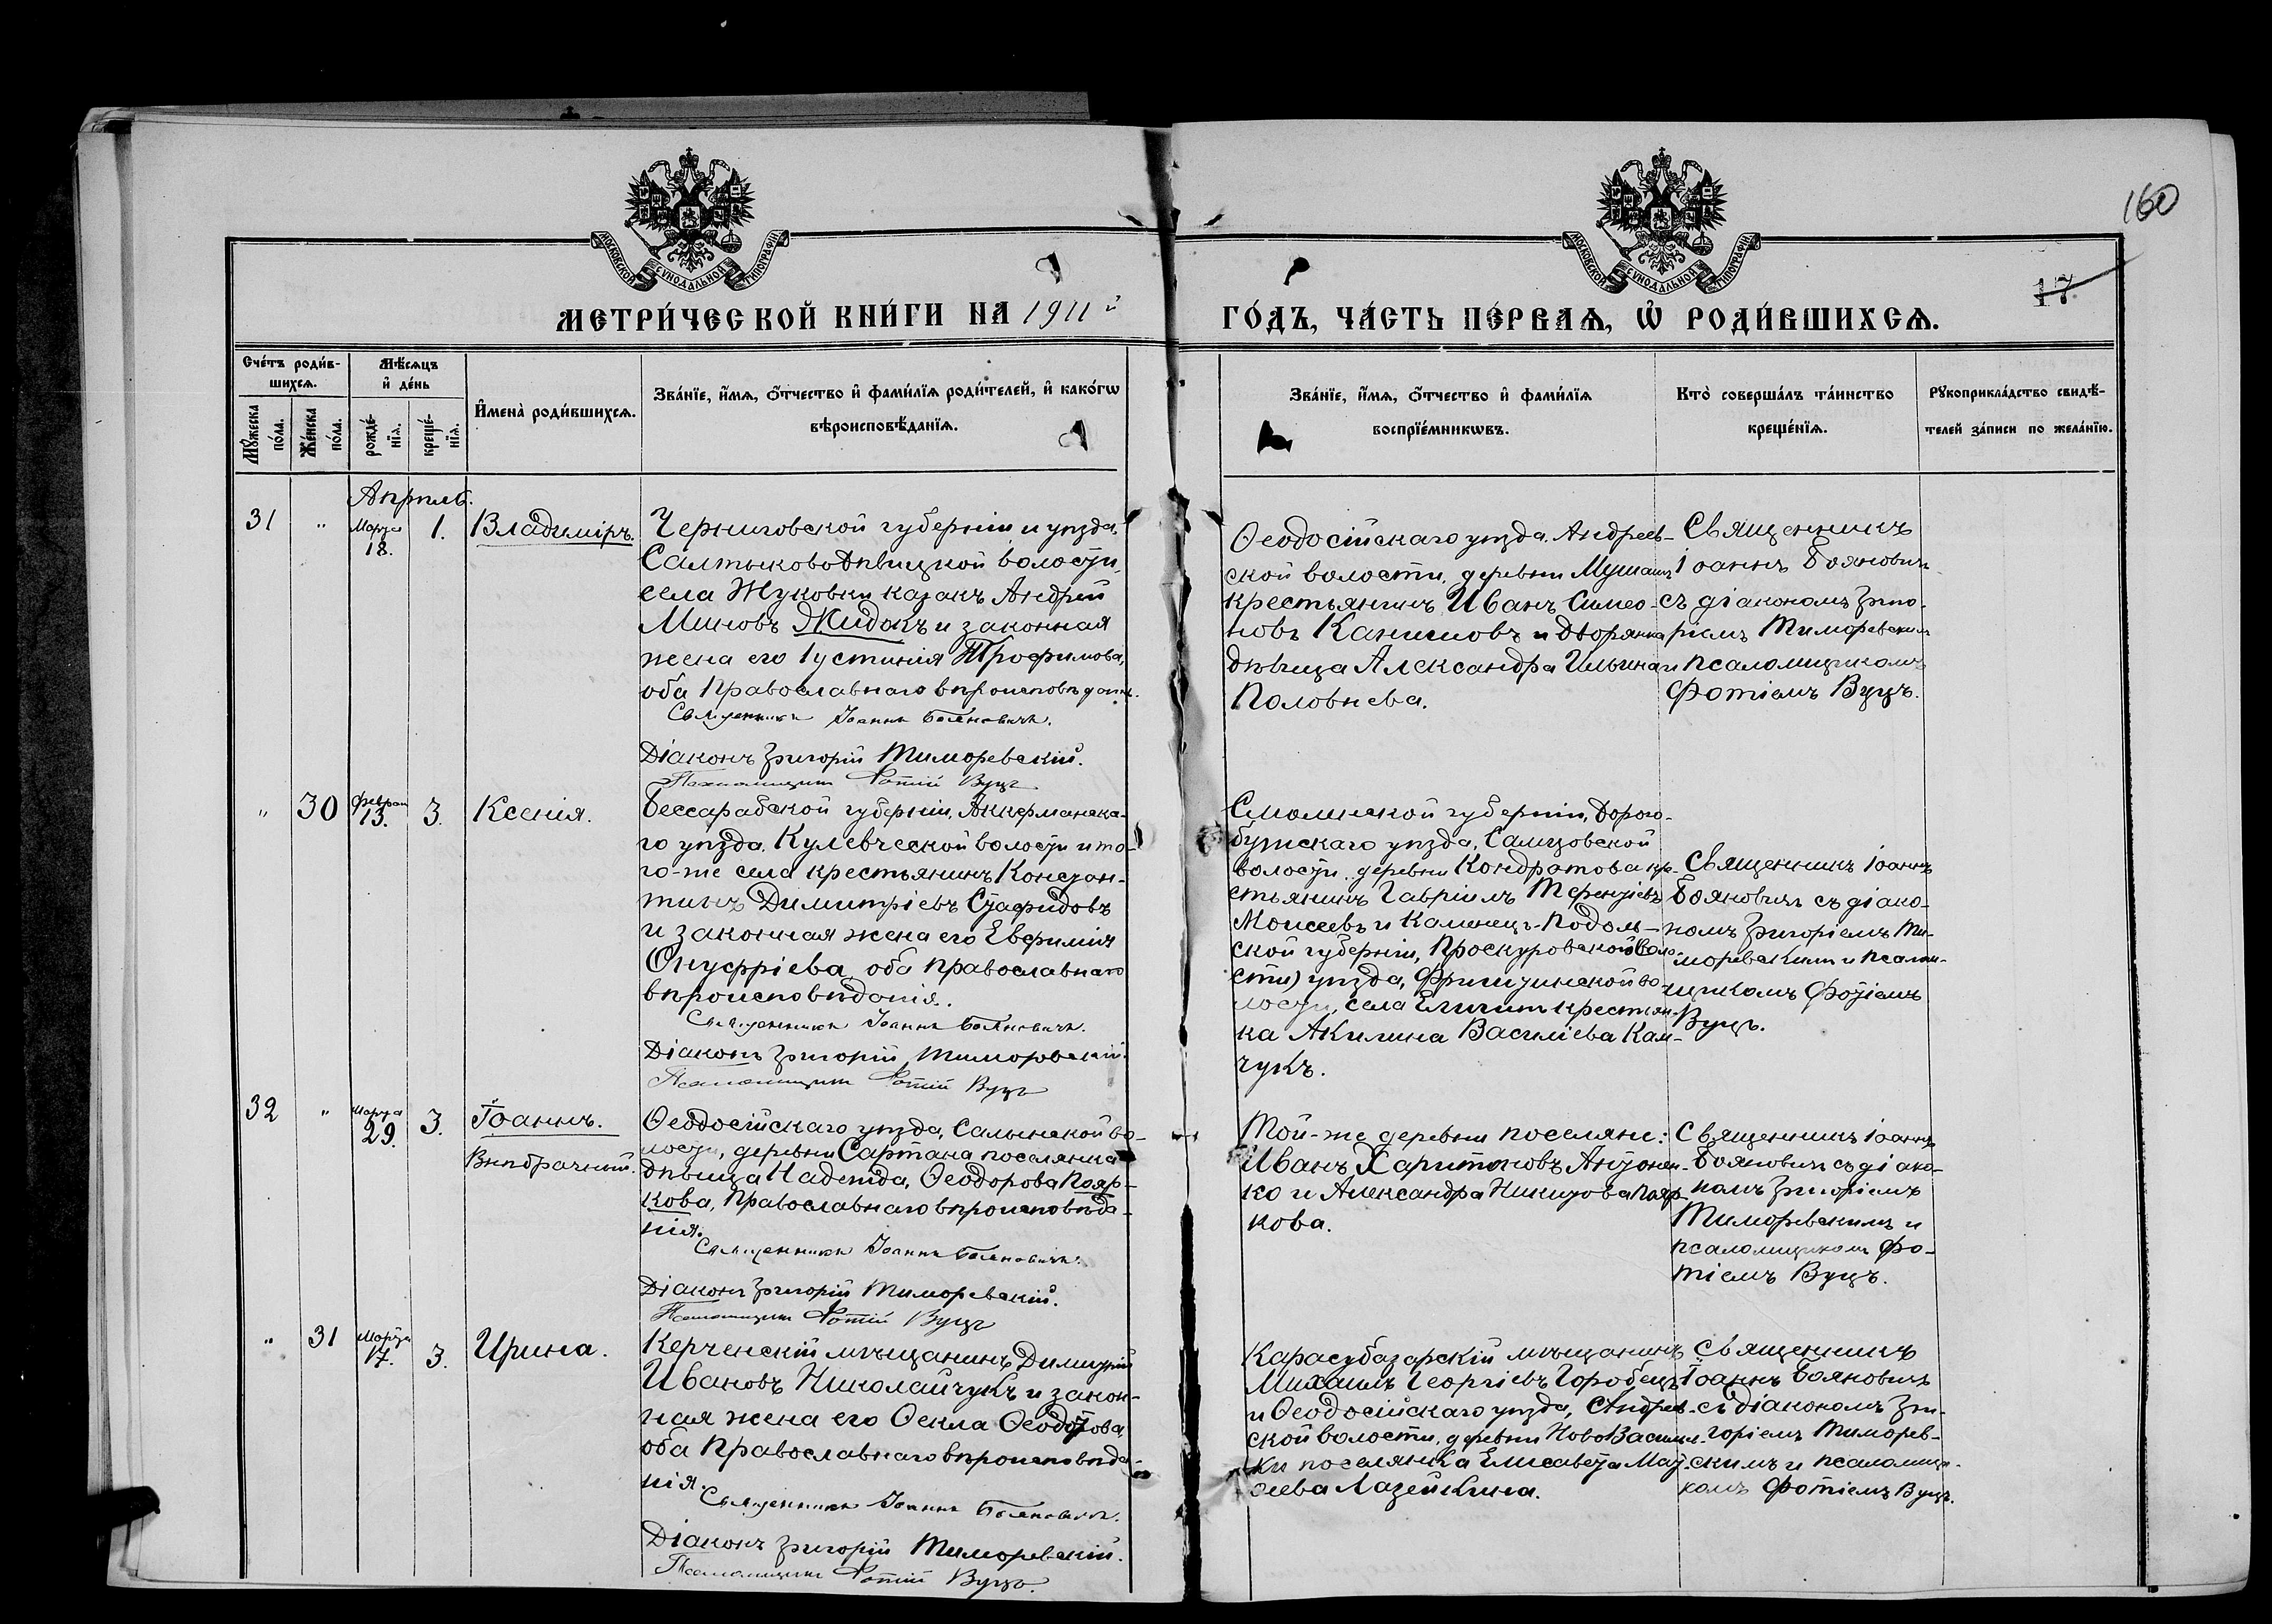 160
17
МОСКОВСКОЙ СѴНОДАЛЬНОЙ ТИПОГРАФІИ
МОСКОВСКОЙ СѴНОДАЛЬНОЙ ТИПОГРАФІИ
МЕТРИ́ЧЕСКОЙ КНИ́ГИ НА 1911й
ГО́ДЪ, ЧА́СТЬ ПЕ́РВАѦ, Ѡ҆ РОДИ́ВШИХСѦ.
Сче́тъ роди́в-
шихсѧ.
Мѣ́сѧцъ
и҆ де́нь
Мꙋ́жеска
по́ла.
Же́нска
по́ла.
рожде́-
нїѧ.
креще́-
нїѧ.
И҆мена̀ роди́вшихсѧ.
Зва́нїе, и҆́мѧ, о҆́тчество и҆ фами́лїѧ роди́телей, и҆ како́гѡ
вѣроисповѣ́данїѧ.
Зва́нїе, и҆́мѧ, о҆́тчество и҆ фами́лїѧ
воспрїе́мникѡвъ.
Кто̀ соверша́лъ та́инство
креще́нїѧ.
Рꙋкоприкла́дство свидѣ́-
телей за́писи по жела́нїю.
Апрѣль.
31 " Марта 18. 1. Владиміръ.
Черниговской губерніи и уѣзда,
СалтыковоДѣвицкой волости,
села Жуковки казакъ Андрей
Миновъ Жидокъ и законная
жена его Іустинія Трофимова,
оба Православнаго вѣроисповѣданія.
Священникъ Іоаннъ Бояновичъ.
Діаконъ Григорій Тиморевскій.
Псаломщикъ Фотій Вуцъ
Ѳеодосійскаго уѣзда, Андреев-
ской волости, деревни
крестьянинъ Иванъ Симео-
новъ Канишовъ и дворянка
дѣвица Александра Ильина
Половнева.
Священникъ
Іоаннъ Бояновичъ
съ діакономъ Григо-
ріемъ Тиморевскимъ
и псаломщикомъ
Фотіемъ Вуцъ.
" 30 Феврал 13. 3. Ксенія.
Бессарабской губерніи, Аккерманска-
го уѣзда, Кулевческой волости и то-
го-же села крестьянинъ Констан-
тинъ Димитріевъ Стафидовъ
и законная жена его Евфимія
Онуфріева, оба Православнаго
вѣроисповѣданія.
Священникъ Іоаннъ Бояновичъ.
Діаконъ Григорій Тиморевскій.
Псаломщикъ Фотій Вуцъ
Смоленской губерніи, Дорого-
бужскаго уѣзда, Самцовской
волости, деревни Кондратова кре-
стьянинъ Гавріилъ Терентіевъ
Моисеевъ и Каменец-Подоль-
ской губерніи, Проскуровской (воло-
сти) уѣзда, во-
лости, села крестьян-
ка Акилина Василіева Кам-
чукъ.
Священникъ Іоаннъ
Бояновичъ съ діако-
номъ Григоріемъ Ти-
моревскимъ и псалом-
щикомъ Фотіемъ
Вуцъ.
32 " Марта 29. 3. Іоаннъ.
Внѣбрачный.
Ѳеодосійскаго уѣзда, Салынской во-
лости, деревни Сартана поселянка
дѣвица Надежда, Ѳеодорова Пояр-
кова, Православнаго вѣроисповѣда-
нія.
Священникъ Іоаннъ Бояновичъ.
Діаконъ Григорій Тиморевскій.
Псаломщикъ Фотій Вуцъ
Той-же деревни поселяне:
Иванъ Харитоновъ Антонен-
ко и Александра Никитова Пояр-
кова.
Священникъ Іоаннъ
Бояновичъ съ діако-
номъ Григоріемъ
Тиморевскимъ и
псаломщикомъ Фо-
тіемъ Вуцъ.
" 31 Марта 17. 3. Ирина.
Керченскій мѣщанинъ Димитрій
Ивановъ Николайчукъ и закон-
ная жена его Ѳекла Ѳеодотова,
оба Православнаго вѣроисповѣда-
нія.
Священникъ Іоаннъ Бояновичъ.
Діаконъ Григорій Тиморевскій.
Псаломщикъ Фотій Вуцъ.
Карасубазарскій мѣщанинъ
Михаилъ Георгіевъ Горобецъ
и Ѳеодосійскаго уѣзда, Андреев-
ской волости, деревни НовоВасильев-
ки поселянка Елисавета Мат-
ѳеева Лазейкина.
Священникъ
Іоаннъ Бояновичъ
съ діакономъ Гри-
горіемъ Тиморев-
скимъ и псаломщи-
комъ Фотіемъ Вуцъ.